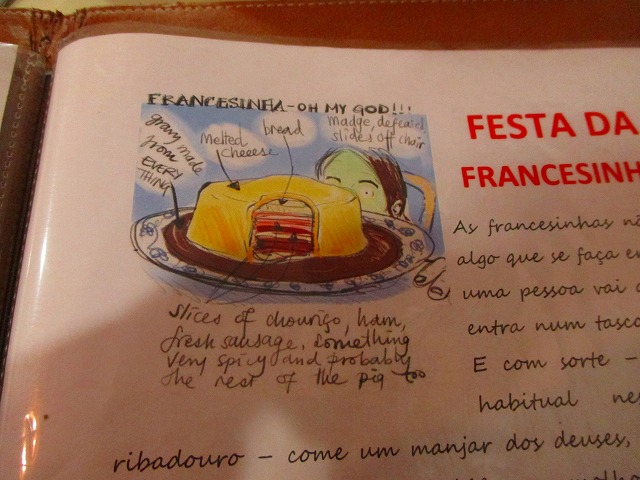 FRANCESINHA - OH MY GOD!!!
gravy made
from
EVERY
THING
Melted
cheeese
bread
madge, defeated,
slides off chair
slices of chouriço, ham,
fresh sausage, something
very spicy and probably
the rest of the pig too
FESTA DA
FRANCESINH
As francesinhas nã
algo que se faça e
uma pessoa vai
entra num tasc
E com sorte –
habitual nes
ribadouro – come um manjar dos deuses,